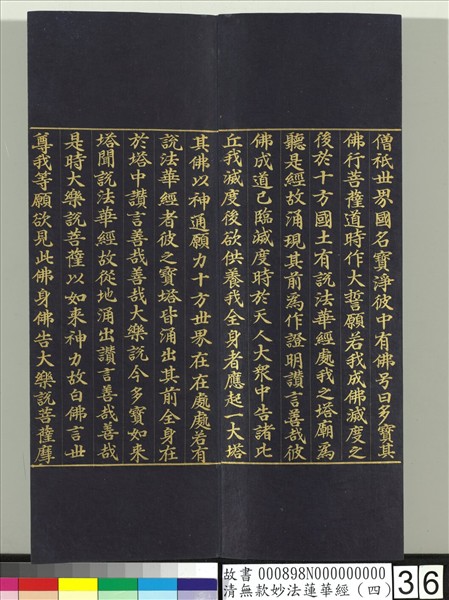 僧祇世界國名寶淨彼中有佛号曰多寶其
佛行菩薩道時作大誓願若我成佛滅度之
後於十方國土有說法華經處我之塔廟為
聽是經故涌現其前為作證明讚言善哉彼
佛成道已臨滅度時於天人大眾中告諸比
丘我滅度後欲供養我全身者應起一大塔
其佛以神通願力十方世界在在處處若有
說法華經者彼之寶塔皆涌出其前全身在
於塔中讚言善哉善哉大樂說今多寶如來
塔聞說法華經故從地涌出讚言善哉善哉
是時大樂說菩薩以如來神力故白佛言世
尊我等願欲見此佛身佛告大樂說菩薩摩
故書 000898N000000000
清無款妙法蓮華經(四)
36